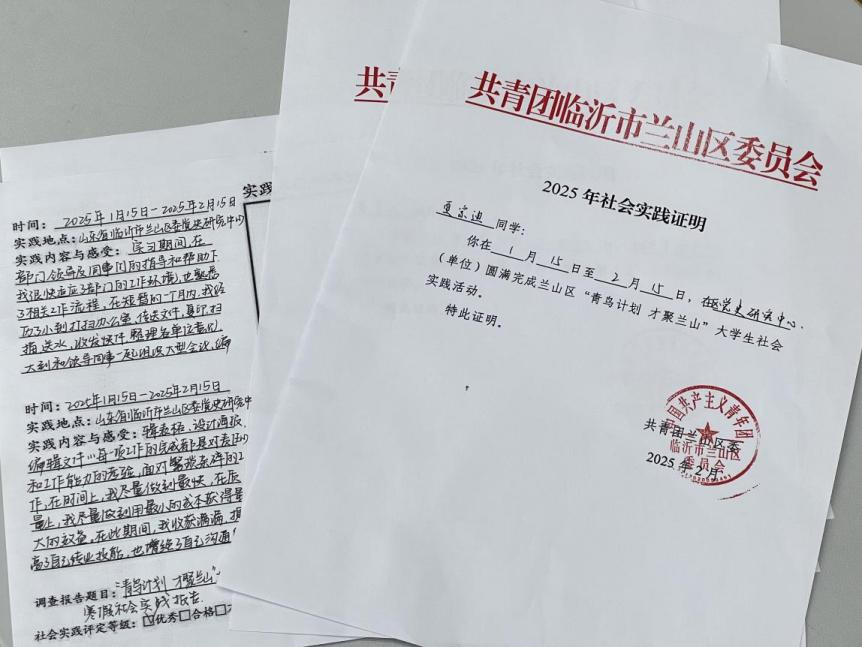 共青团临沂市兰山区委员会
2025年社会实践证明
夏宗迪 同学:
你在 1 月 15 日至 2 月 15 日，在区党史研究中心
(单位)圆满完成兰山区“青鸟计划 才聚兰山”大学生社会
实践活动。
特此证明。
共青团兰山区委
2025年2月
中国共产主义青年团
临沂市兰山区
委员会
共青
实践
时间: 2025年1月15日-2025年2月15日
实践地点: 山东省临沂市兰山区委党史研究中心
实践内容与感受: 实习期间,在
部门领导及同事们的指导和帮助下
我很快适应了部门的工作环境,也熟悉
了相关工作流程,在短暂的一个月内,我经
历了小到打扫办公室,传送文件,复印、扫
描,送水,收发快件,整理名单这意见,
大到和领导同事一起组织大型会议,编
时间: 2025年1月15日-2025年2月15日
实践地点: 山东省临沂市兰山区委党史研究中
实践内容与感受: 辑表格,设计海报,
编辑文件……每一项工作的完成都是对责任心
和工作能力的考验,面对繁杂琐碎的
作,在时间上,我尽量做到最快,在质
量上,我尽量做到用最小的成本获得最
大的效益,在此期间,我收获满满,提
高了自己专业技能,也增强了自己沟通
调查报告题目: “青鸟计划 才聚兰山”
寒假社会实践报告
社会实践评定等级: ☑优秀□合格□